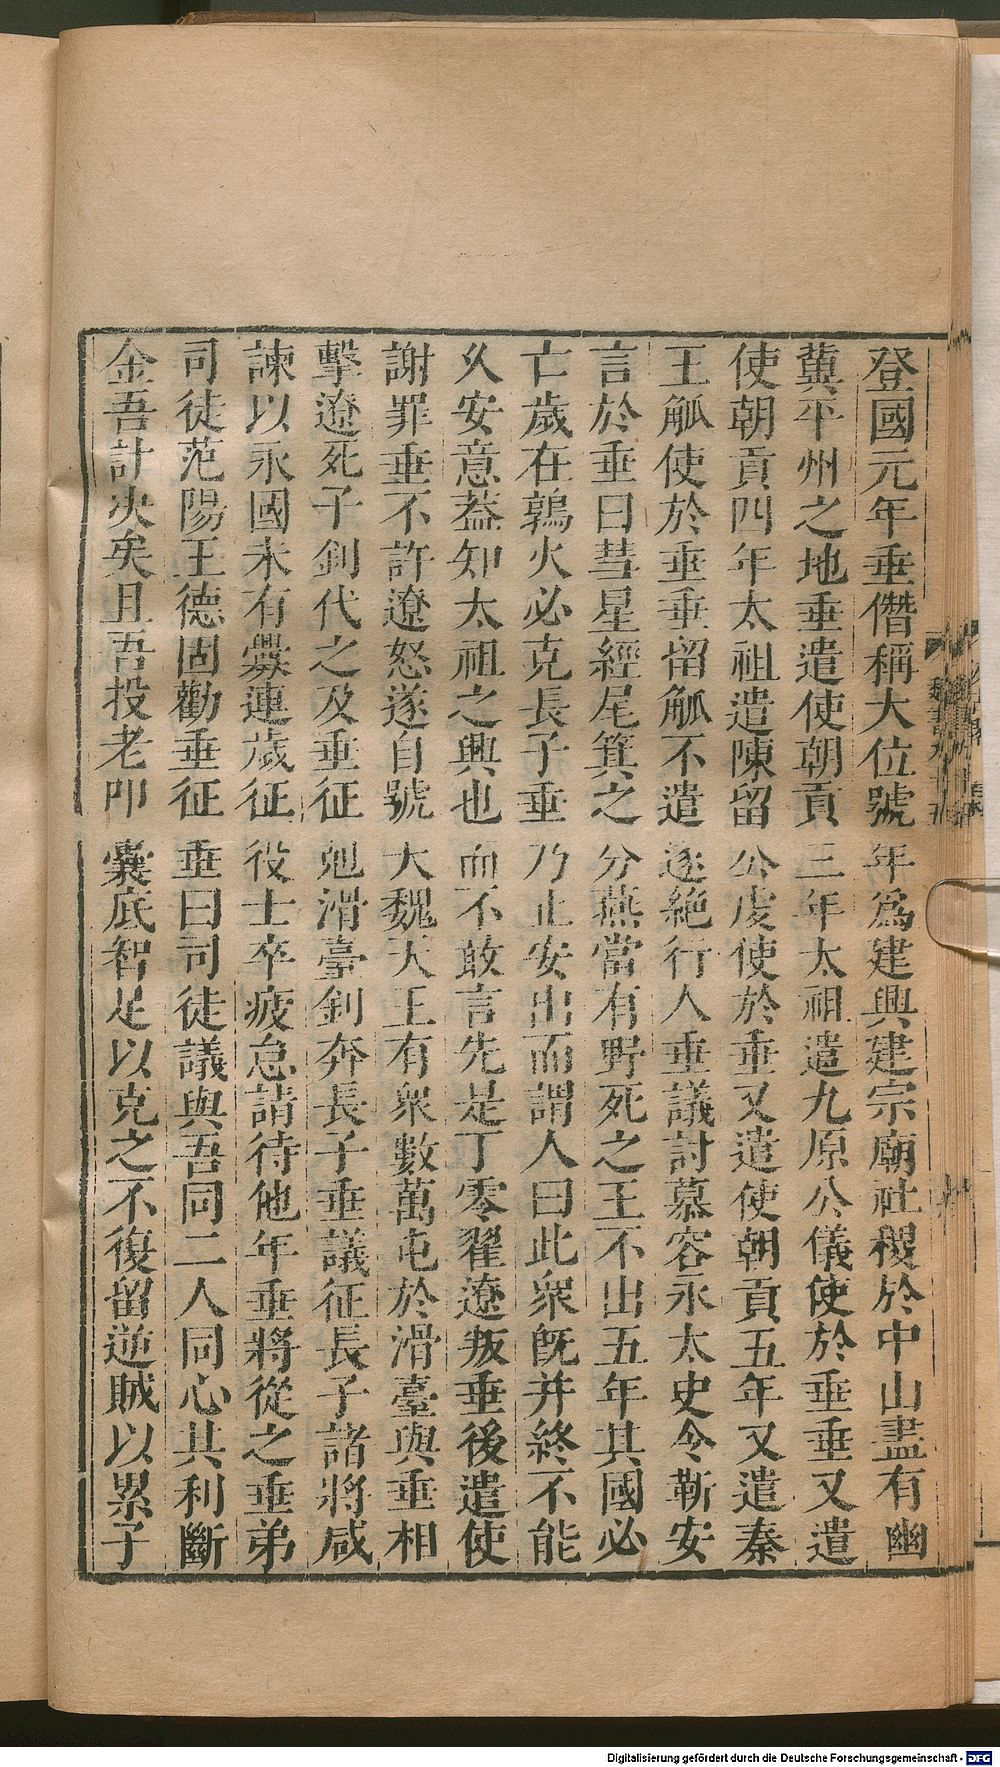 登國元年垂僭稱大位號年爲建興建宗廟社稷於中山盡有幽
冀平州之地垂遣使朝貢三年太祖遣九原公儀使於垂垂又遣
使朝貢四年太祖遣陳留公虔使於垂又遣使朝貢五年又遣秦
王觚使於垂垂留觚不遣遂絶行人垂議討慕容永太史令靳安
言於垂曰彗星經尾箕之分燕當有野死之王不出五年其國必
亡歲在鶉火必克長子垂乃止安出而謂人曰此衆旣并終不能
久安意葢知太祖之興也而不敢言先是丁零翟遼叛垂後遣使
謝罪垂不許遼怒遂自號大魏天王有衆數萬屯於滑臺與垂相
擊遼死子釗代之及垂征剋滑臺釗奔長子垂議征長子諸將咸
諫以永國未有釁連歲征役士卒疲怠請待他年垂將從之垂弟
司徒范陽王德固勸垂征垂曰司徒議與吾同二人同心其利斷
金吾計決矣且吾投老叩囊底智足以克之不復留逆賊以累子
Digitalisierung gefördert durch die Deutsche Forschungsgemeinschaft - DFG